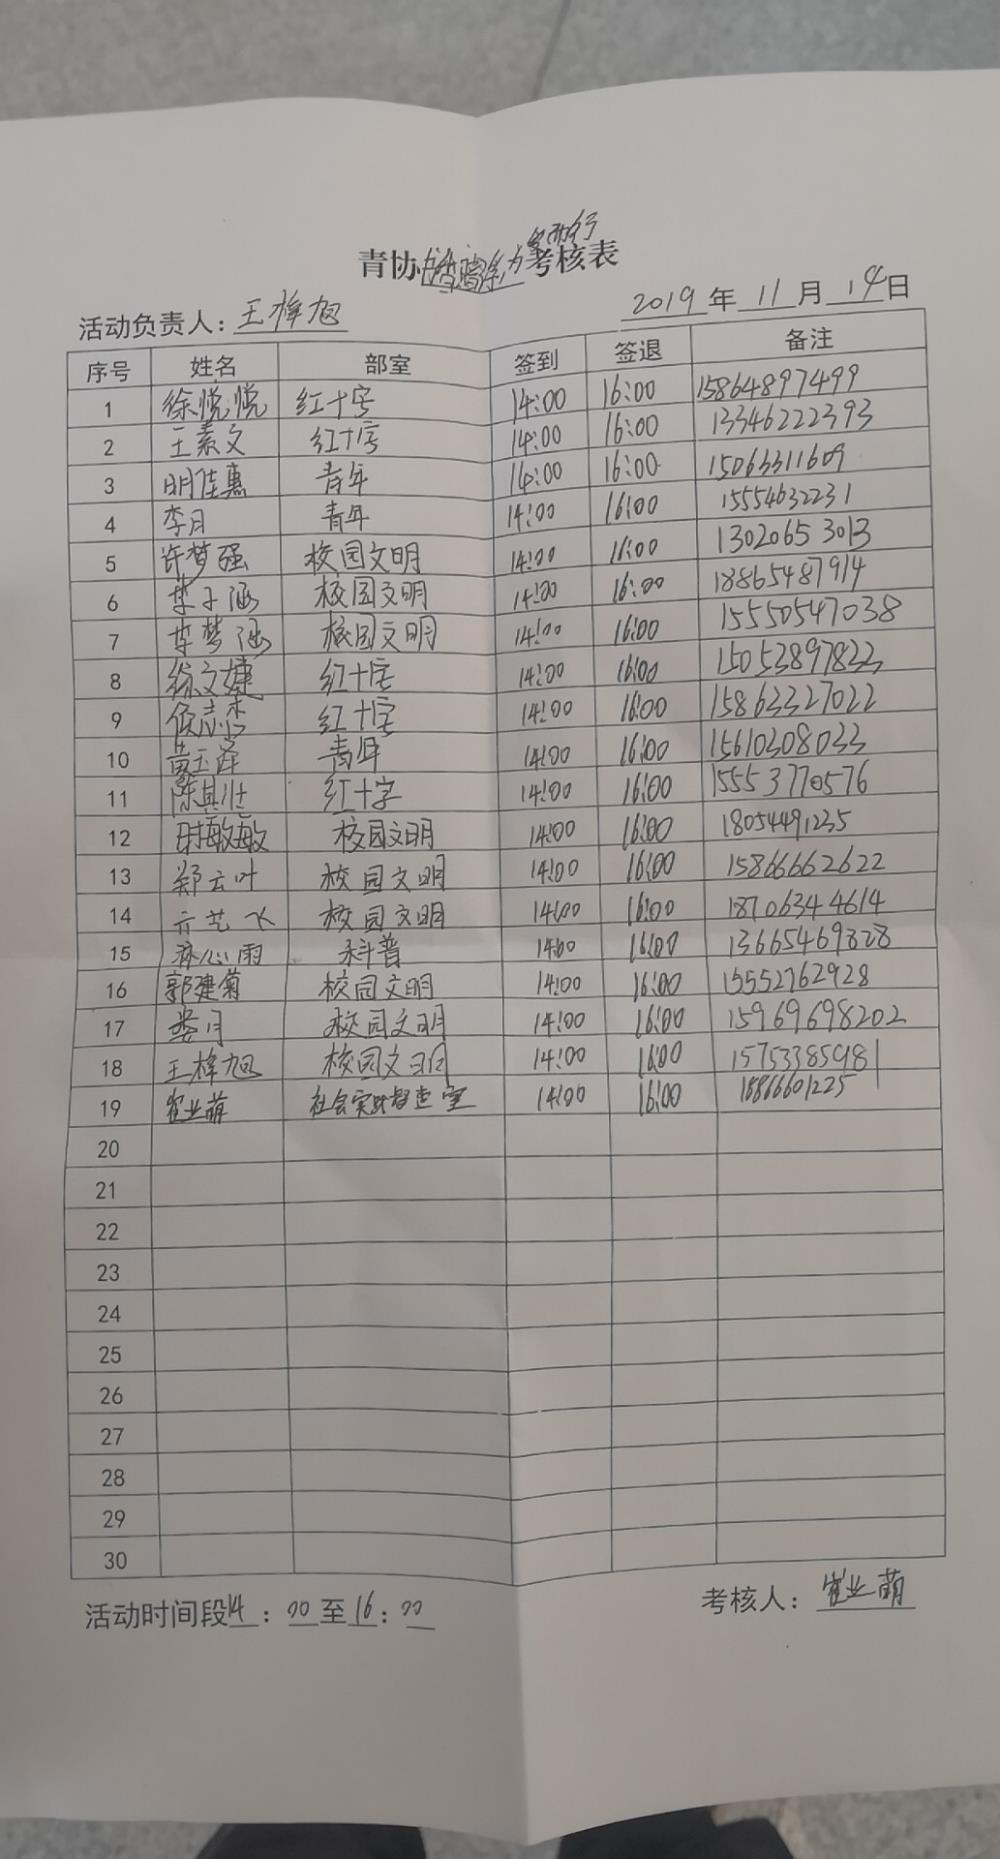 青协 考核表
活动负责人：王梓旭 2019年11月14日
序号 姓名 部室 签到 签退 备注
1 徐悦悦 红十字 14:00 16:00 15864897499
2 王素文 红十字 14:00 16:00 13346222393
3 明佳惠 青年 14:00 16:00 15063311609
4 李月 青年 14:00 16:00 15554632231
5 许梦强 校园文明 14:00 16:00 13020653013
6 李子涵 校园文明 14:00 16:00 18865487914
7 李梦涵 校园文明 14:00 16:00 15550547038
8 徐文婕 红十字 14:00 16:00 15053897822
9 侯志杰 红十字 14:00 16:00 15863327022
10 黄玉泽 青年 14:00 16:00 15610308033
11 陈其 红十字 14:00 16:00 15553770576
12 时敏敏 校园文明 14:00 16:00 18054491235
13 郑云叶 校园文明 14:00 16:00 15866662622
14 亓艺飞 校园文明 14:00 16:00 18706344614
15 心雨 科普 14:00 16:00 13665469828
16 郭建菊 校园文明 14:00 16:00 15552762928
17 娄月 校园文明 14:00 16:00 15969698202
18 王梓旭 校园文明 14:00 16:00 15753385981
19 崔业萌 社会实践督查室 14:00 16:00 18866601225
20
21
22
23
24
25
26
27
28
29
30
活动时间段14：00至16：00 考核人：崔业萌